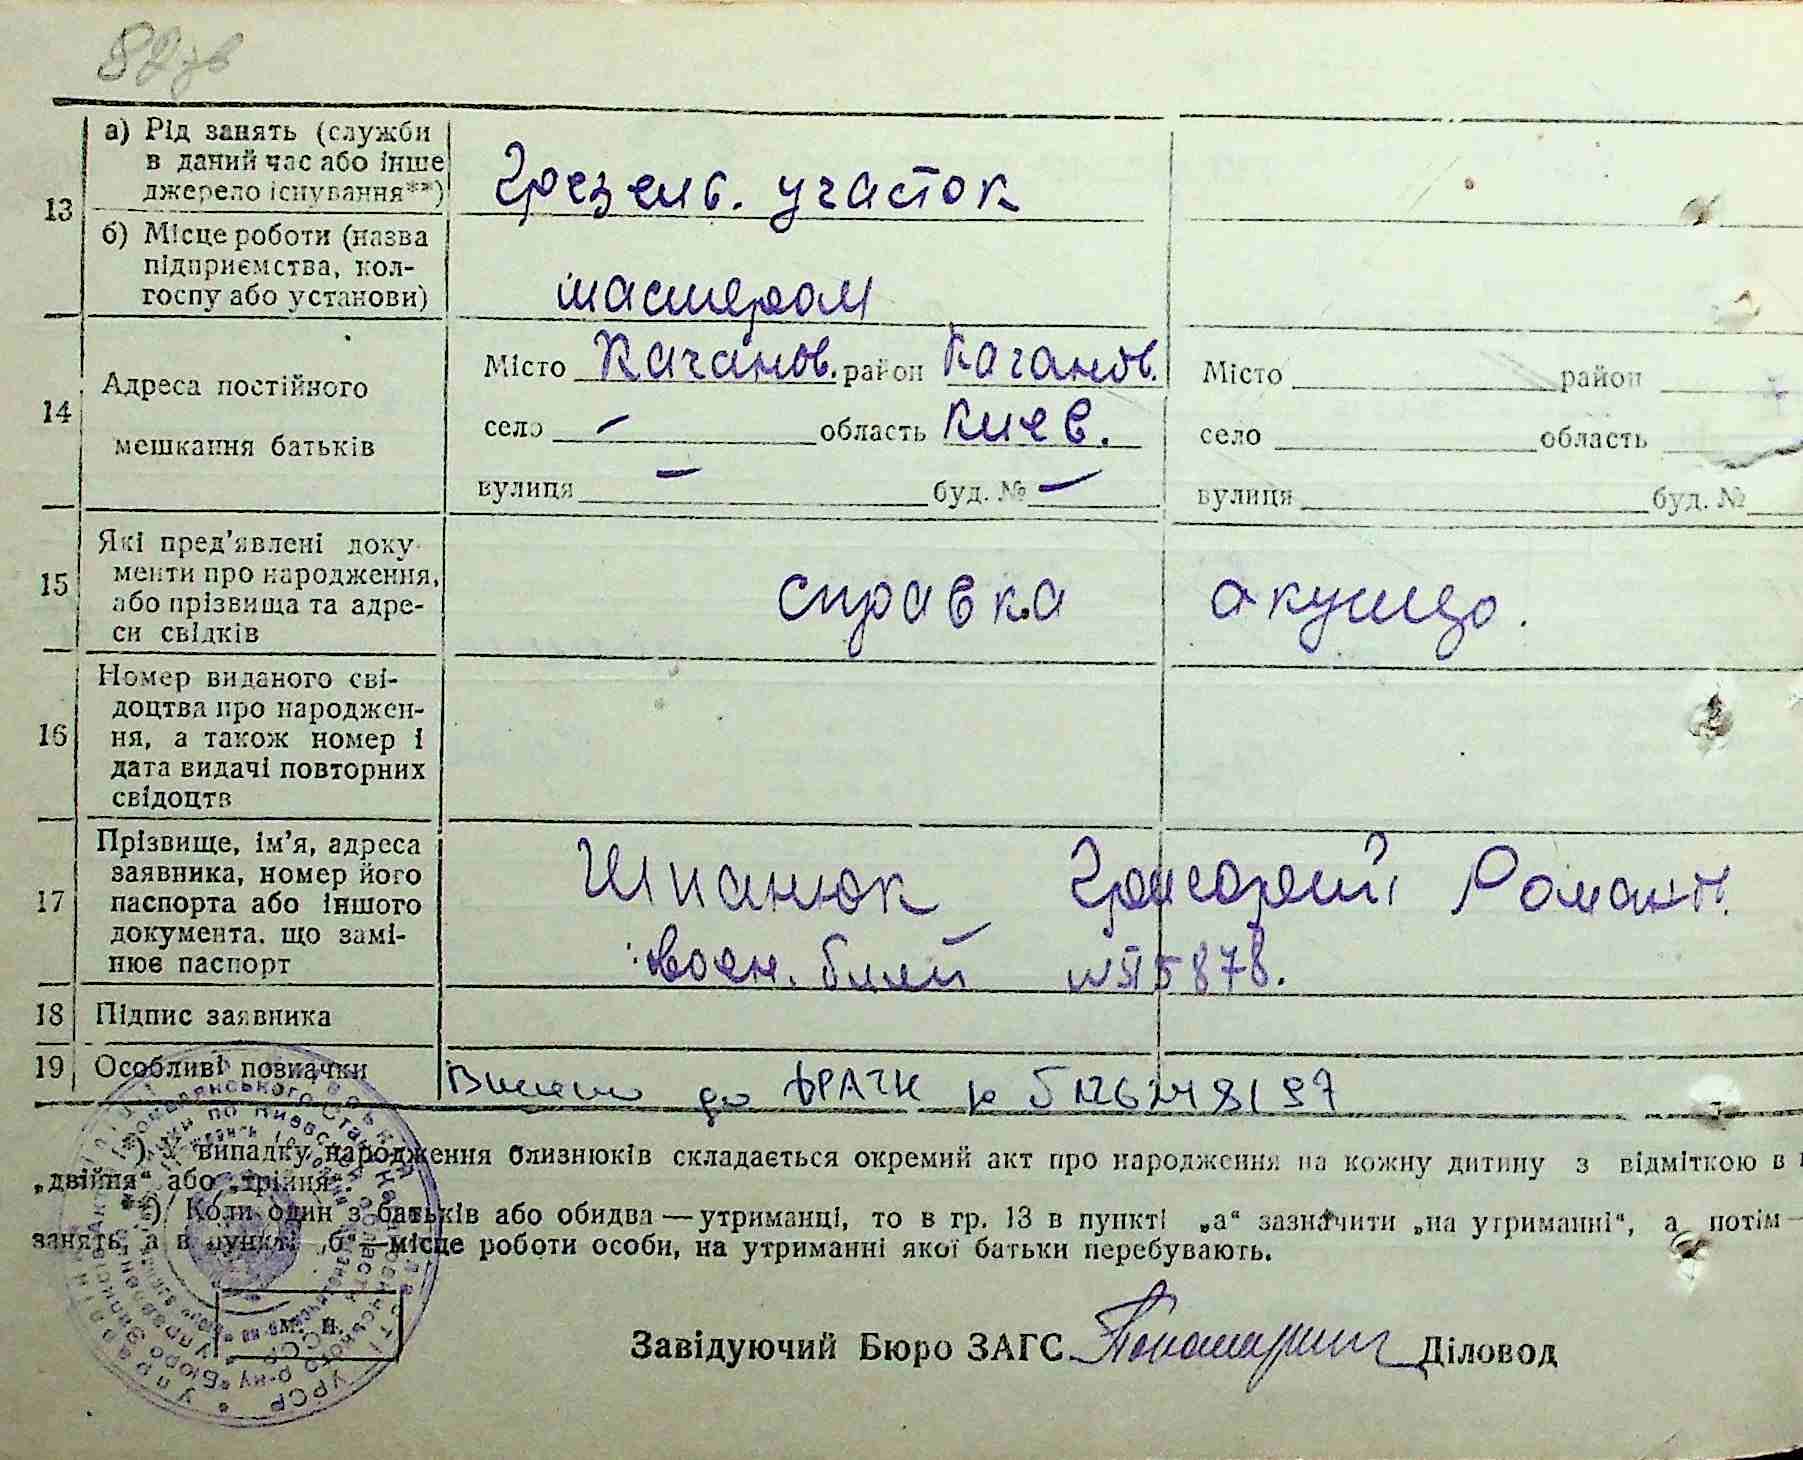 82 зв
13
а) Рід занять (служби
в даний час або інше
джерело існування**)
Грезельв. участок
б) Місце роботи (назва
підприємства, кол-
госпу або установи)
мастером
14
Адреса постійного
мешкання батьків
Місто Каганов. район Каганов. Місто район
село – область Киев. село область
вулиця – буд. № – вулиця буд. №
15
Які пред'явлені доку-
менти про народження,
або прізвища та адре-
си свідків
справка акушер.
16
Номер виданого сві-
доцтва про народжен-
ня, а також номер і
дата видачі повторних
свідоцтв
17
Прізвище, ім'я, адреса
заявника, номер його
паспорта або іншого
документа, що замі-
нює паспорт
Шпанюк Григорий Романов.
воен. билет
18 Підпис заявника
19 Особливі позначки
Внесено до ДРАЦГ
*) У випадку народження близнюків складається окремий акт про народження на кожну дитину з відміткою в
„двійня“ або „трійня“.
**) Коли один з батьків або обидва — утриманці, то в гр. 13 в пункті „а“ зазначити „на утриманні“, а потім —
занять, а в пункті „б“ — місце роботи особи, на утриманні якої батьки перебувають.
М. П.
Завідуючий Бюро ЗАГС Діловод